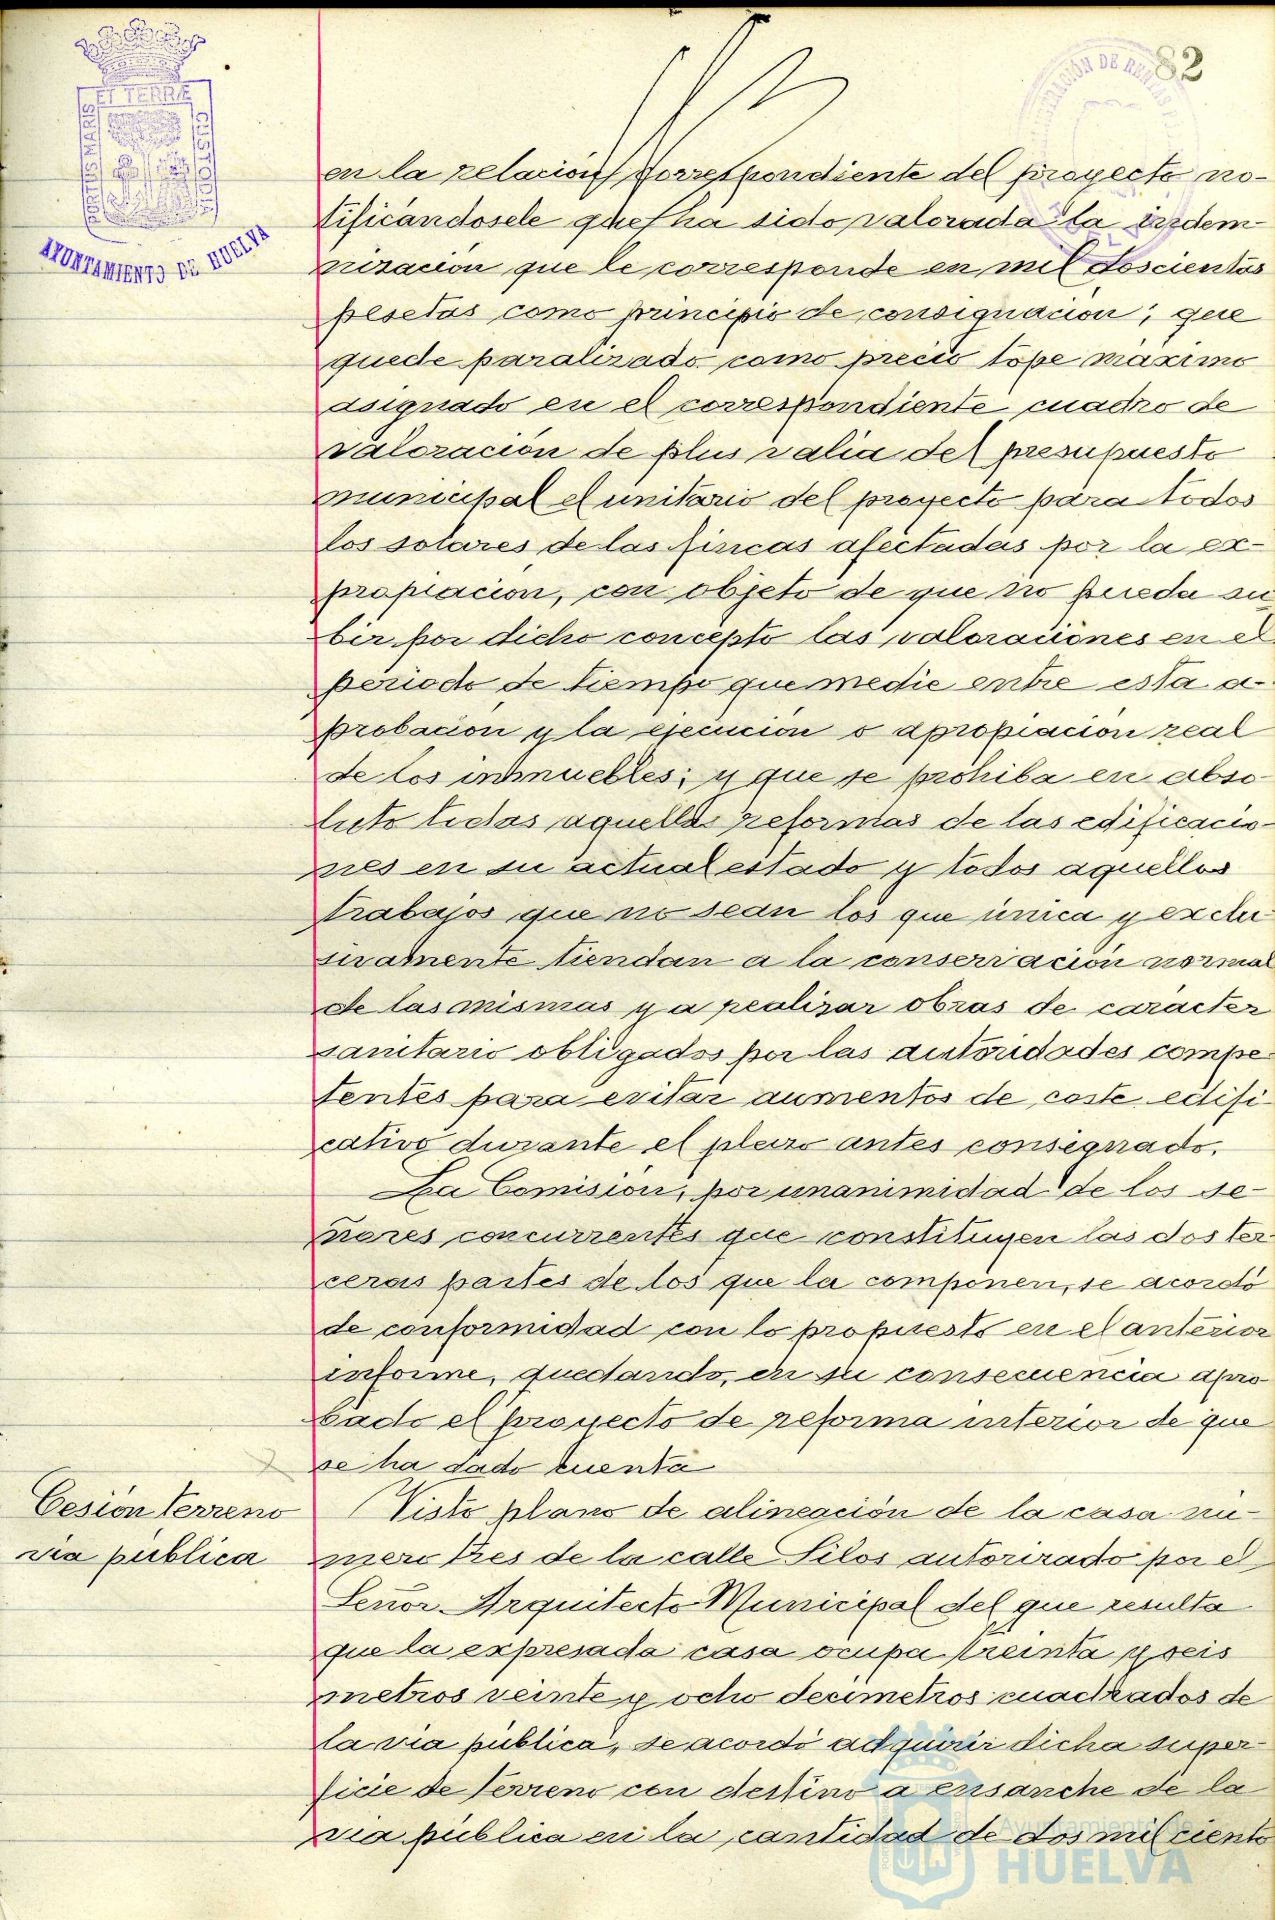 82
PORTUS MARIS
ET TERRÆ
CUSTODIA
AYUNTAMIENTO DE HUELVA
en la relacion correspondiente del proyecto no-
tificandosele que ha sido valorada la indem-
nizacion que le corresponde en mil doscientas
pesetas como principio de consignacion; que
quede paralizado como precio tope maximo
asignado en el correspondiente cuadro de
valoracion de plus valia del presupuesto
municipal el unitario del proyecto para todos
los solares de las fincas afectadas por la ex-
propiacion, con objeto de que no pueda su
bir por dicho concepto las valoraciones en el
periodo de tiempo que medie entre esta a-
probacion y la ejecucion o apropiacion real
de los inmuebles; y que se prohiba en abso-
luto todas aquellas reformas de las edificacio-
nes en su actual estado y todos aquellos
trabajos que no sean los que unica y exclu
sivamente tiendan a la conservacion normal
de las mismas y a realizar obras de caracter
sanitario obligados por las autoridades compe
tentes para evitar aumentos de coste edifi-
cativo durante el plazo antes consignado.
La Comision, por unanimidad de los se-
ñores concurrentes que constituyen las dos ter
ceras partes de los que la componen, se acordó
de conformidad con lo propuesto en el anterior
informe, quedando, en su consecuencia apro
bado el proyecto de reforma interior de que
se ha dado cuenta
Cesión terreno
via publica
Visto plano de alineación de la casa nu-
mero tres de la calle Silos autorizado por el
Señor Arquitecto Municipal del que resulta
que la expresada casa ocupa treinta y seis
metros veinte y ocho decimetros cuadrados de
la via publica, se acordó adquirir dicha super-
ficie de terreno con destino a ensanche de la
via publica en la cantidad de dos mil ciento
Ayuntamiento de
HUELVA